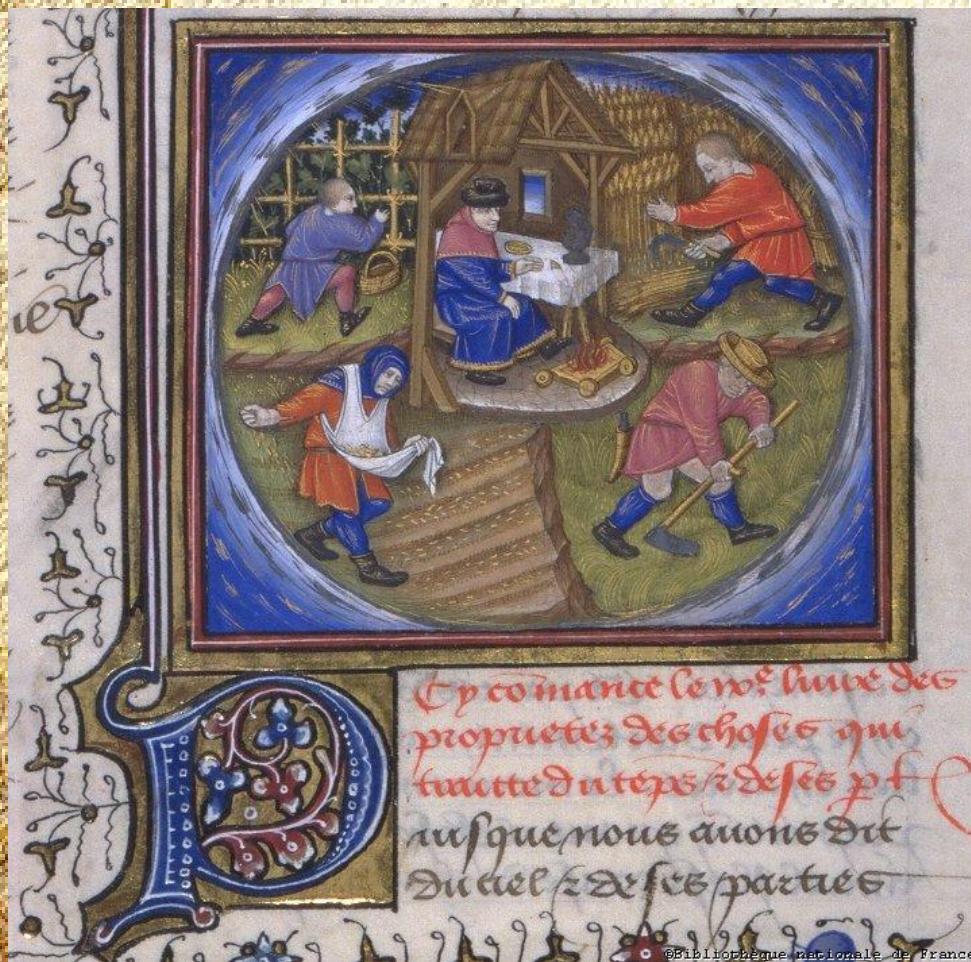 Cy comance le ixe. livre des
proprietez des choses qui
traicte du teps & de ses p t
Puisque nous avons dit
du ciel & de ses parties
©Bibliothèque nationale de France